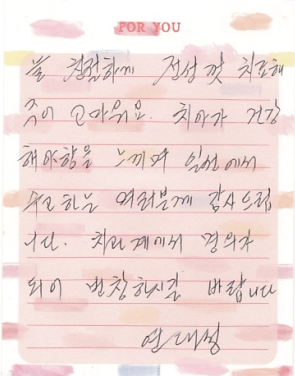 FOR YOU
늘 친절하게 정성껏 치료해
주어 고마워요. 치아가 건강
해야함을 느끼며 일선에서
수고하는 여러분께 감사드립
니다. 치과계에서 명의가
되어 번창하시길 바랍니다